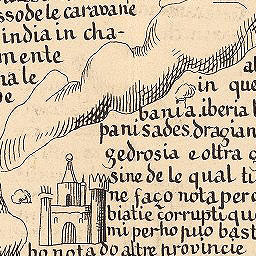 ssode le caravane
india in cha-
mente
na le
al
in que
bania.iberia
panisades.dragian
gedrosia e oltra
sine de le qual
ne faço nota per
biatie corrupti qu
mi per ho puo bast
ho nota do altre provincie